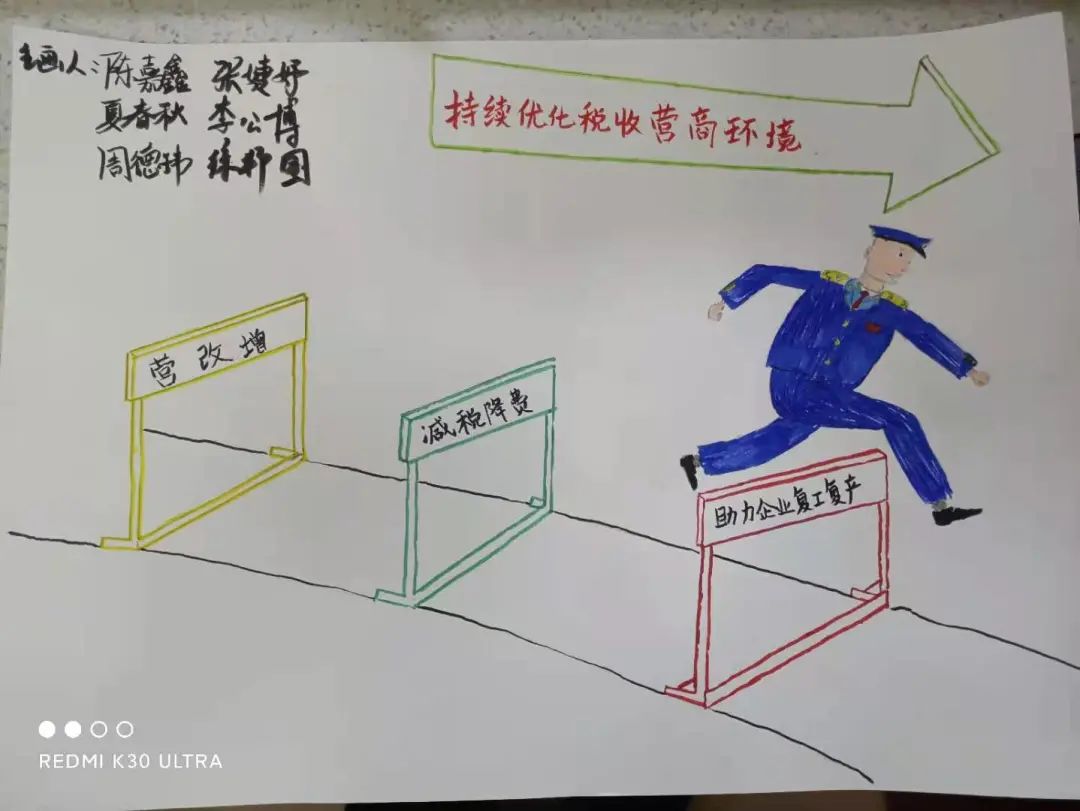 主画人:陈嘉鑫 张婕妤
夏春秋 李公博
周德玮
持续优化税收营商环境
营改增
减税降费
助力企业复工复产
REDMI K30 ULTRA